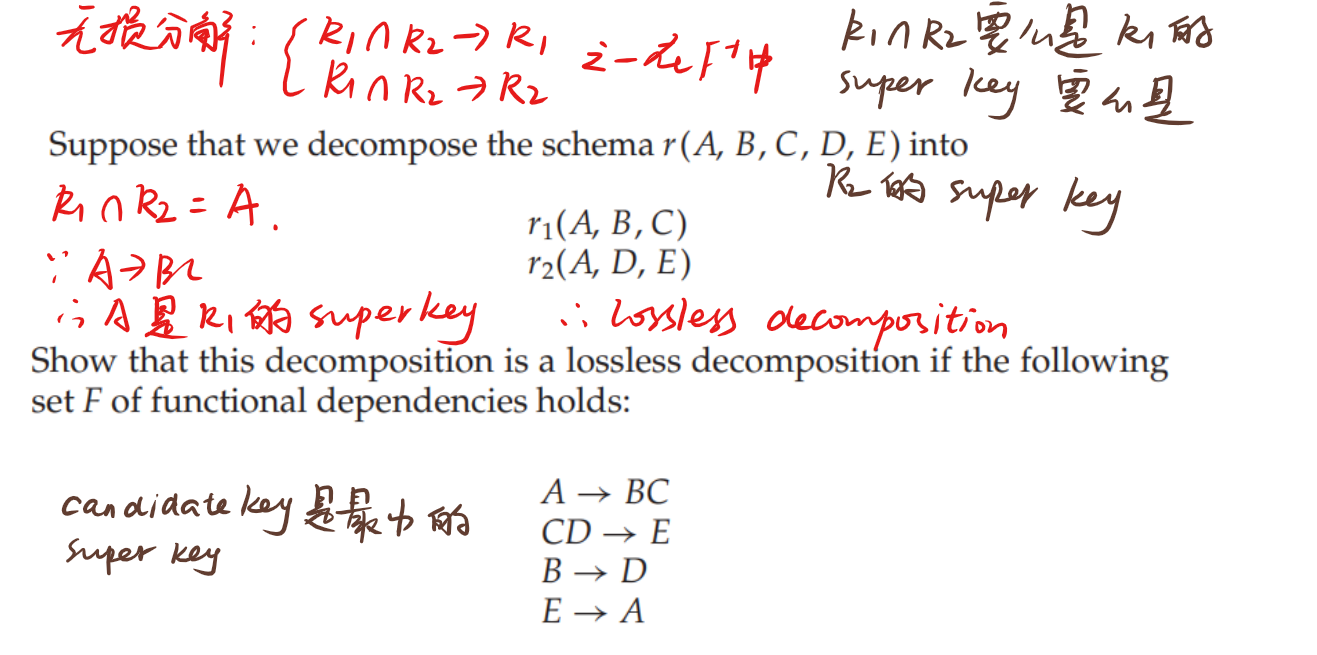 无损分解: { R1∩R2→R1 之一在F+中
R1∩R2→R2
R1∩R2要么是R1的
super key 要么是
R2的 super key
Suppose that we decompose the schema r(A, B, C, D, E) into
R1∩R2 = A.
r₁(A, B, C)
∵ A→BC
r₂(A, D, E)
∴ A是R1的superkey ∴ lossless decomposition
Show that this decomposition is a lossless decomposition if the following
set F of functional dependencies holds:
candidate key 是最小的
super key
A → BC
CD → E
B → D
E → A